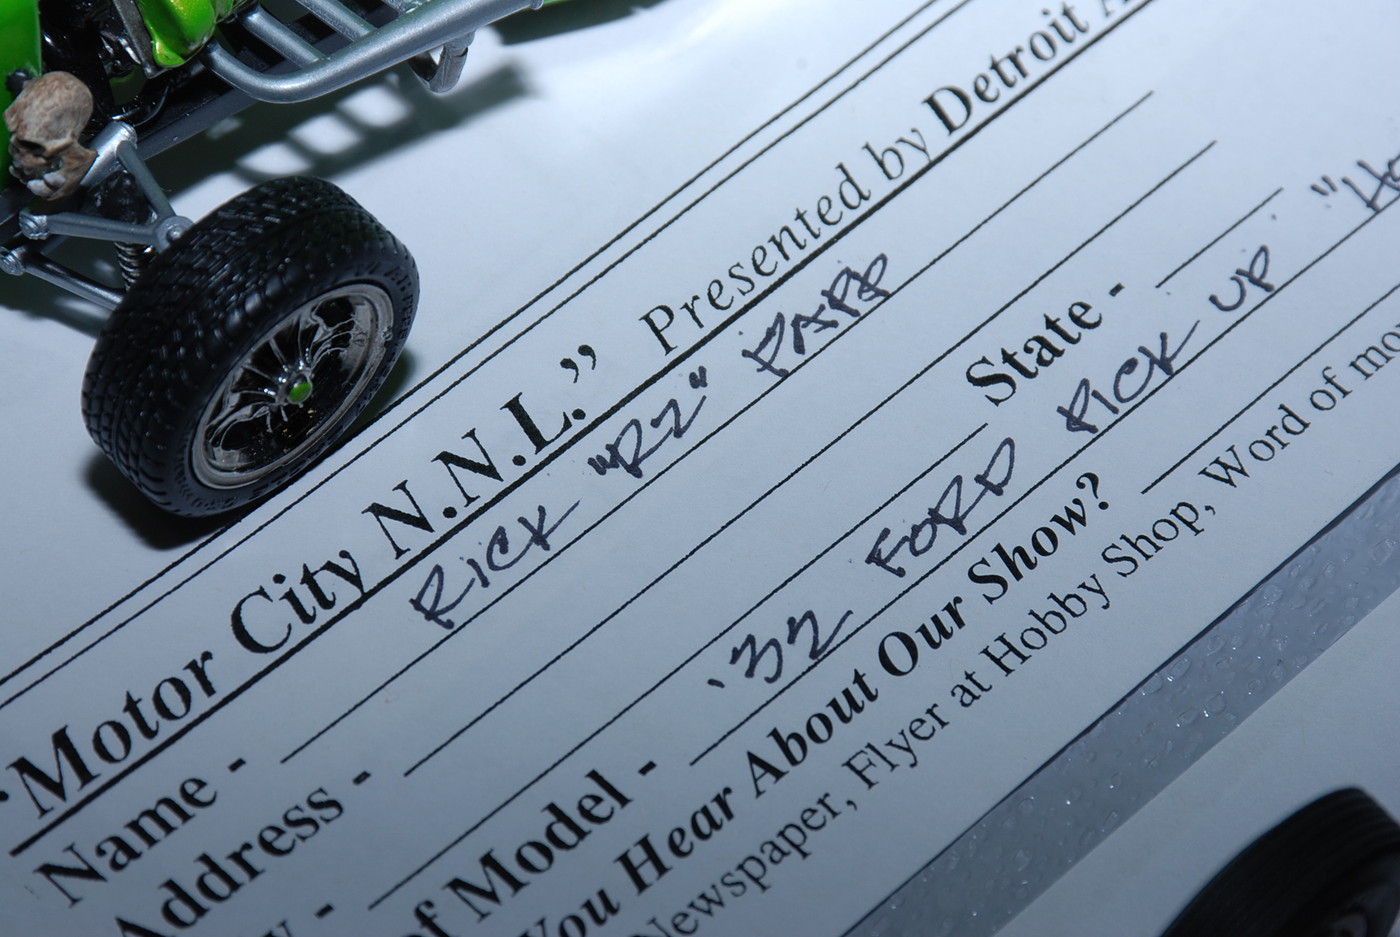 "Motor City N.N.L." Presented by Detroit
Name - RICK "RZ" PAPP
Address -
State -
of Model - '32 FORD PICK UP
You Hear About Our Show?
Newspaper, Flyer at Hobby Shop, Word of